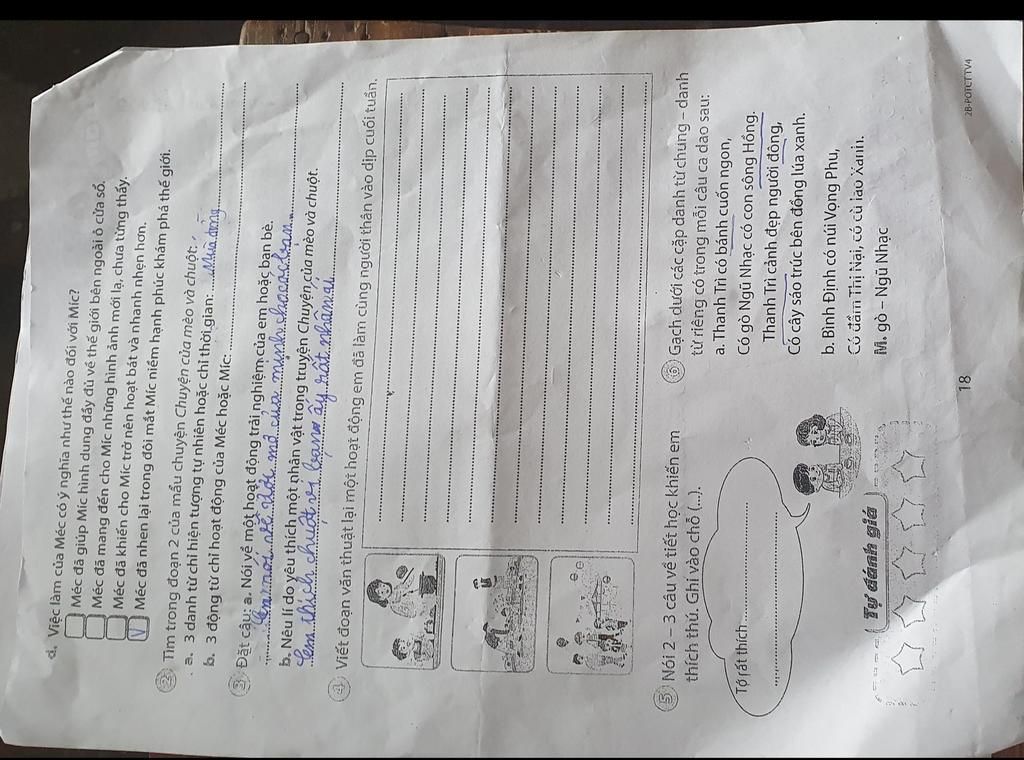 d. Việc làm của Méc có ý nghĩa như thế nào đối với Míc?
Méc đã giúp Míc hình dung đầy đủ về thế giới bên ngoài ô cửa sổ.
Méc đã mang đến cho Míc những hình ảnh mới lạ, chưa từng thấy.
Méc đã khiến cho Míc trở nên hoạt bát và nhanh nhẹn hơn.
V Méc đã nhen lại trong đôi mắt Míc niềm hạnh phúc khám phá thế giới.
2 Tìm trong đoạn 2 của mẩu chuyện Chuyện của mèo và chuột:
a. 3 danh từ chỉ hiện tượng tự nhiên hoặc chỉ thời gian: Mùa đông
b. 3 động từ chỉ hoạt động của Méc hoặc Míc:
3 Đặt câu: a. Nói về một hoạt động trải nghiệm của em hoặc bạn bè.
Em nói về mơ của mình cho các bạn
b. Nêu lí do yêu thích một nhân vật trong truyện Chuyện của mèo và chuột.
Em thích chuột vì bạn ấy rất nhân ái
4 Viết đoạn văn thuật lại một hoạt động em đã làm cùng người thân vào dịp cuối tuần.
5 Nói 2 – 3 câu về tiết học khiến em
thích thú. Ghi vào chỗ (...).
Tớ rất thích
Tự đánh giá
6 Gạch dưới các cặp danh từ chung – danh
từ riêng có trong mỗi câu ca dao sau:
a. Thanh Trì có bánh cuốn ngon,
Có gò Ngũ Nhạc có con sông Hồng.
Thanh Trì cảnh đẹp người đông,
Có cây sáo trúc bên đồng lúa xanh.
b. Bình Định có núi Vọng Phu,
Có đầm Thị Nại, có cù lao Xanh.
M. gò – Ngũ Nhạc
18
2B-POTCTTV4